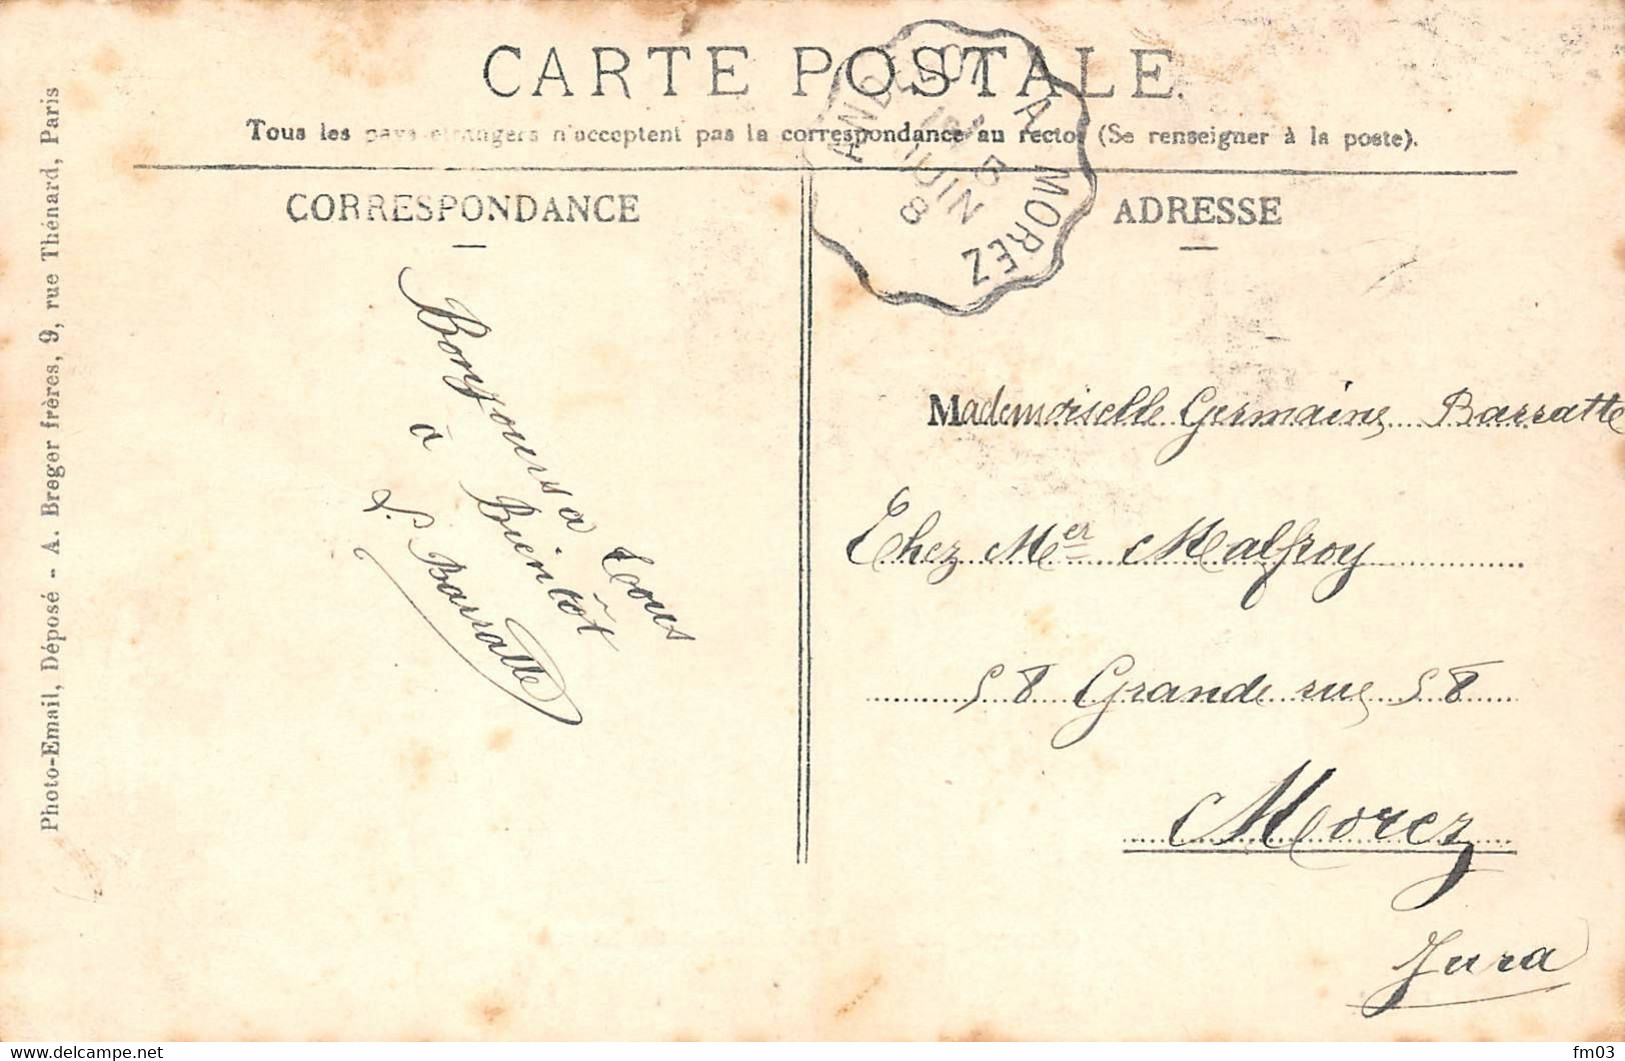 CARTE POSTALE
Tous les pays étrangers n'acceptent pas la correspondance au recto (Se renseigner à la poste).
CORRESPONDANCE
ADRESSE
Photo-Email, Déposé - A. Breger frères, 9, rue Thénard, Paris
ANDELOT A MOREZ
JUIN
Bonjours a tous
à Bientôt
Barratte
Mademoiselle Germaine Barratte
Chez Mer Malfroy
58 Grande rue 58
Morez
Jura
fm03